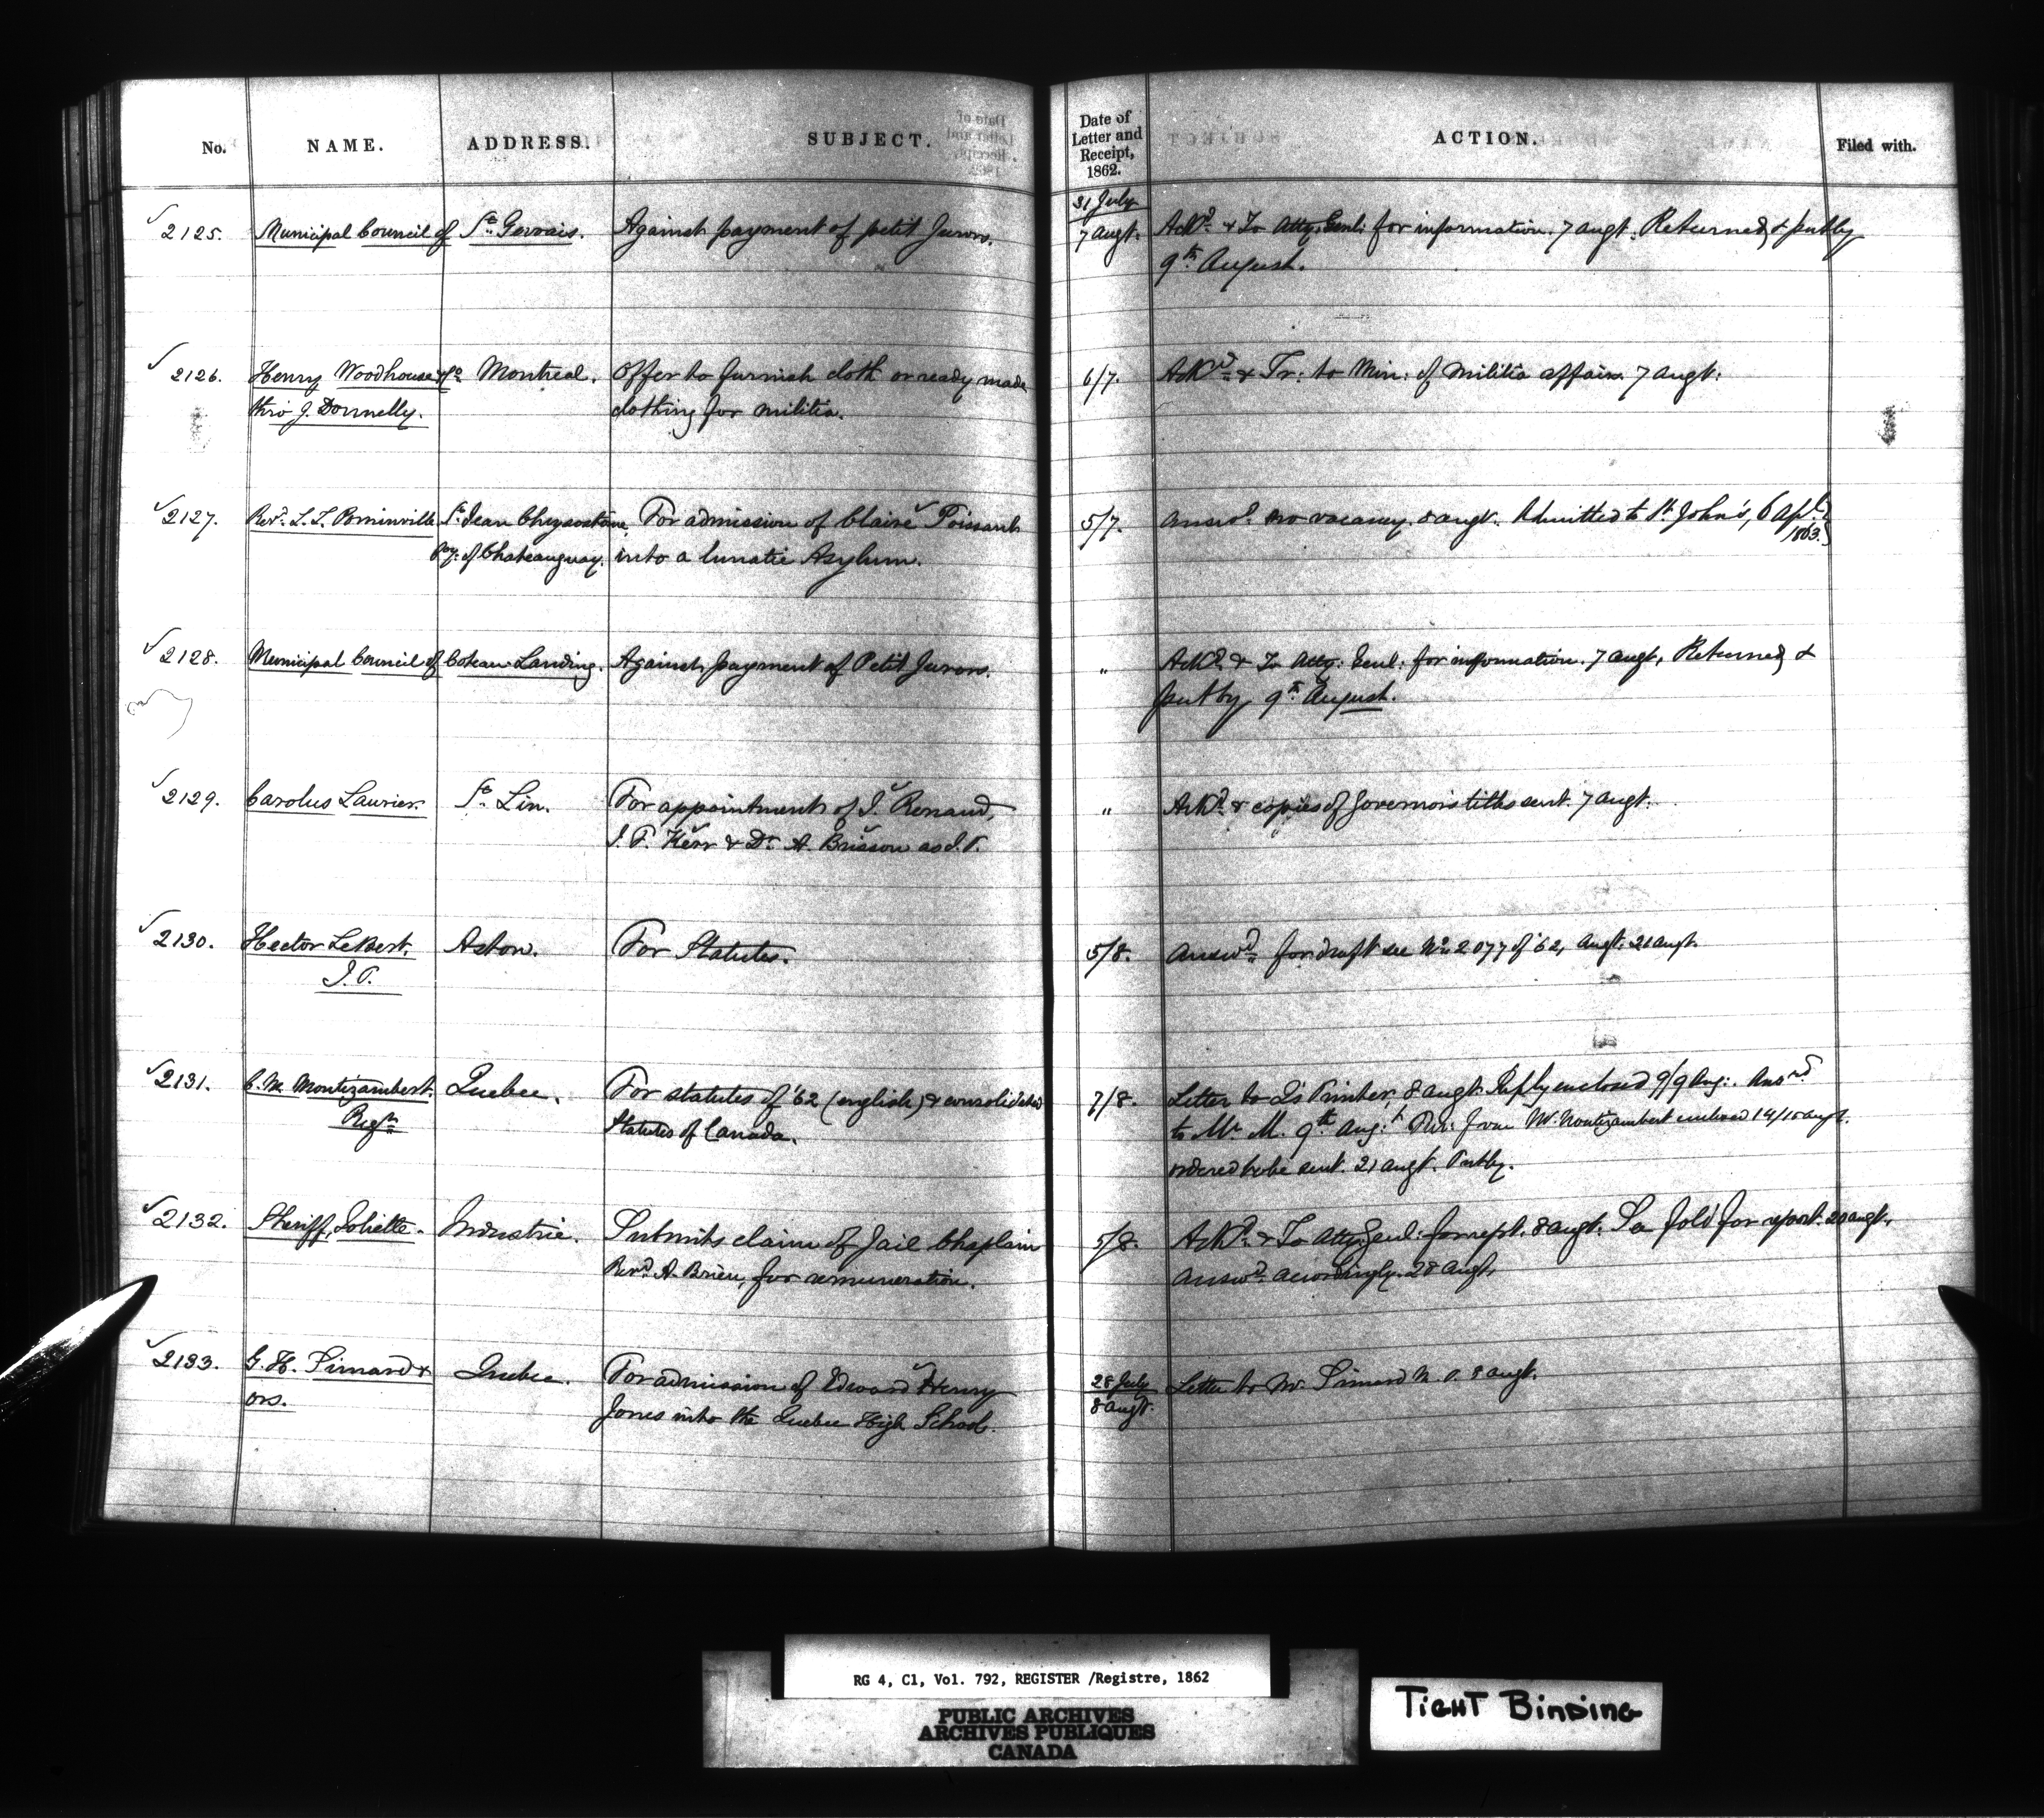 No. NAME. ADDRESS. SUBJECT. Date of Letter and Receipt, 1862. ACTION. Filed with.
2125. Municipal Council of St. Gervais. Against payment of petit Jurors. 31 July 7 Augt. Ackd. & To Atty. Genl: for information. 7 Augt. Returned & putby
9th August.
2126. Henry Woodhouse & Co Montreal. Offer to furnish cloth or ready made 6/7. Ackd. & Tr: to Min: of Militia affairs 7 Augt:
thro J. Donnelly. clothing for militia.
2127. Revd. L. Z. Pominville St. Jean Chrysostome For admission of Claire Poissant 5/7. Answd. no vacancy. 8 augt. Admitted to St. John's, 6 Apl. 1863.
Coy: of Chateauguay. into a lunatic Asylum.
2128. Municipal Council of Coteau Landing. Against payment of Petit Jurors. " Ackd. & To Atty: Genl: for information. 7 Augt, Returned &
put by 9th August.
2129. Carolus Laurier. St. Lin. For appointment of J. Renaud, " Ackd. & copies of Governor's titles sent. 7 Augt.
J. P. Kerr & Dr. A. Brisson as J.P.
2130. Hector LeBert. Aston. For Statutes. 5/8. Answd. for draft see No. 2077 of '62, Augt: 21 Augt.
J.P.
2131. C. M. Montizambert. Quebec. For statutes of '62 (english) & consolidated 7/8. Letter to Q's Printer, 8 augt. Reply enclosed 9/9 Aug:. Ansrd.
Regr. Statutes of Canada. to Mr. M. 9th Aug: from Mr. Montizambert enclosed 14/15 augt.
ordered to be sent. 21 augt. Putby.
2132. Sheriff, Joliette. Industrie. Submits claim of Jail Chaplain 5/8. Ackd. & To Atty. Genl: for rept. 8 augt. See fold for report. 20 augt.
Revd. A. Brien, for remuneration. Answd. accordingly. 28 Augt.
2133. G. H. Simard & Quebec. For admission of Edward Henry 28 July 8 Augt. Letter to Mr. Simard M. P. 8 augt.
ors. Jones into the Quebec High School.
RG 4, C1, Vol. 792, REGISTER /Registre, 1862
PUBLIC ARCHIVES
ARCHIVES PUBLIQUES
CANADA
TIGHT BINDING